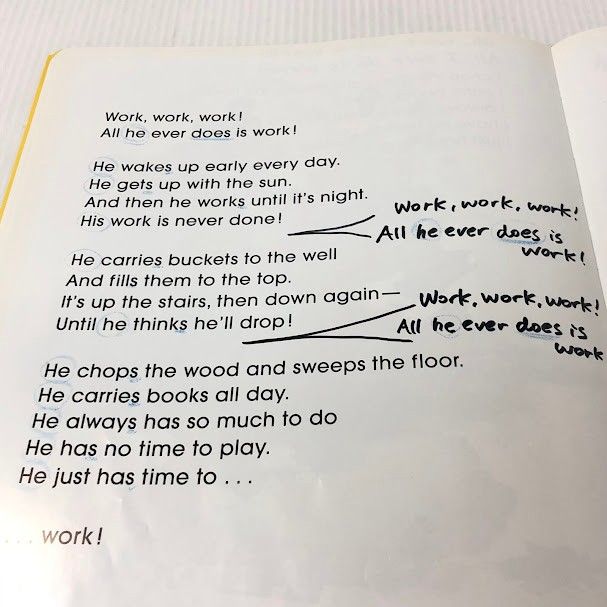 Work, work, work!
All he ever does is work!
He wakes up early every day.
He gets up with the sun.
And then he works until it's night.
His work is never done!
Work, work, work!
All he ever does is
work!
He carries buckets to the well
And fills them to the top.
It's up the stairs, then down again—
Until he thinks he'll drop!
Work, work, work!
All he ever does is
work
He chops the wood and sweeps the floor.
He carries books all day.
He always has so much to do
He has no time to play.
He just has time to . . .
. . . work!